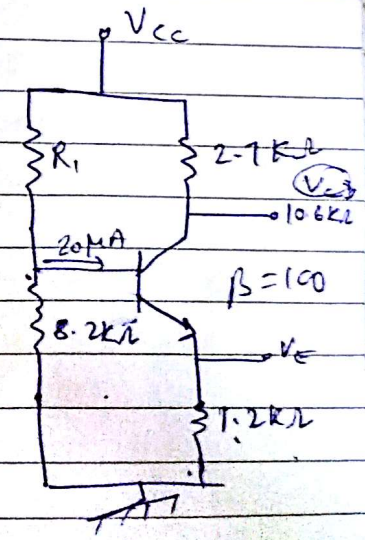 VCC
R1
2.7 KΩ
10.6KΩ
20μA
β=100
8.2KΩ
VE
1.2KΩ